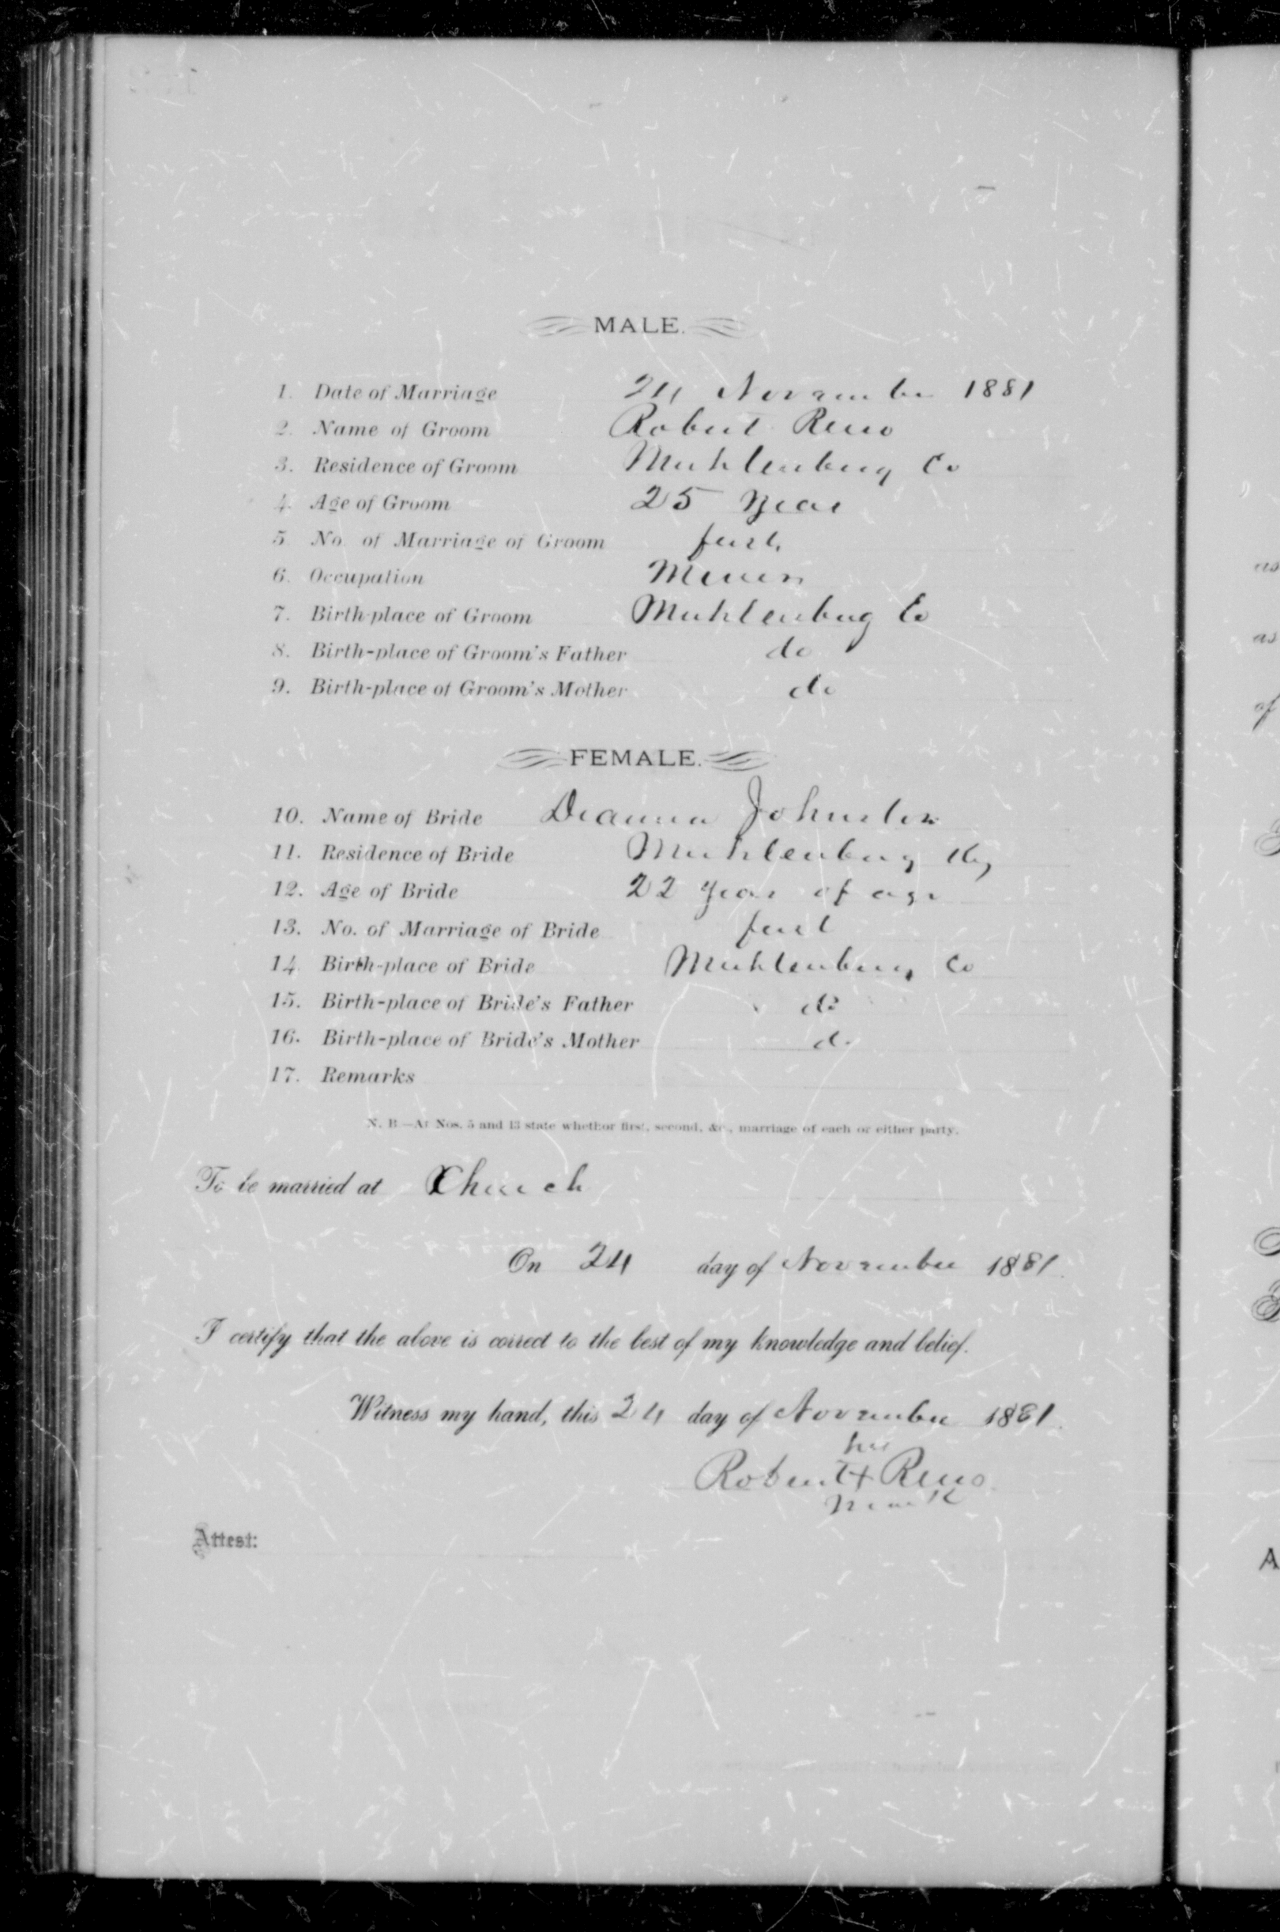 MALE.
1. Date of Marriage 24 November 1881
2. Name of Groom Robert Reno
3. Residence of Groom Muhlenburg Co
4. Age of Groom 25 Year
5. No. of Marriage of Groom first
6. Occupation
7. Birth-place of Groom Muhlenburg Co
8. Birth-place of Groom's Father do
9. Birth-place of Groom's Mother do
FEMALE.
10. Name of Bride Johnston
11. Residence of Bride Muhlenburg Ky
12. Age of Bride 22 year of age
13. No. of Marriage of Bride first
14. Birth-place of Bride Muhlenburg Co
15. Birth-place of Bride's Father do
16. Birth-place of Bride's Mother do
17. Remarks
N. B.—At Nos. 5 and 13 state whethor first, second, &c., marriage of each or either party.
To be married at Church
On 24 day of November 1881
I certify that the above is correct to the best of my knowledge and belief.
Witness my hand, this 24 day of November 1881
his
Robert + Reno
mark
Attest:
as
as
of
A